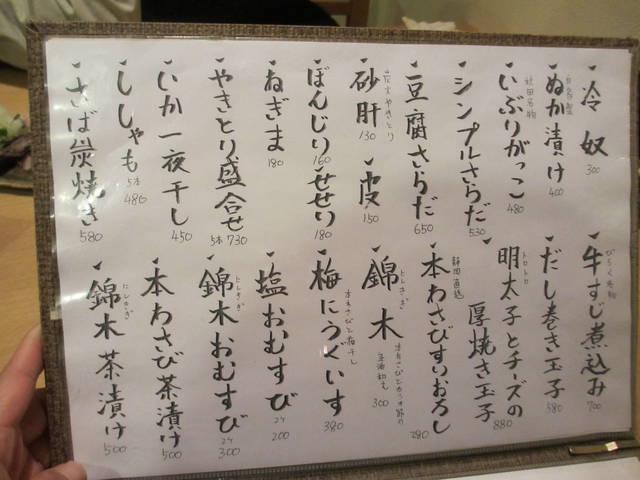 冷奴 300
自家製
ぬか漬け 400
秋田名物
いぶりがっこ 480
シンプルさらだ 530
豆腐さらだ 650
炭火やきとり
砂肝 130 皮 150
ぼんじり 160 せせり 180
ねぎま 180
やきとり盛合せ 5本 730
いか一夜干し 450
ししゃも 5本 480
さば炭焼き 580
びらく名物
牛すじ煮込み 700
だし巻き玉子 580
トロトロ
明太子とチーズの
厚焼き玉子 880
静岡直送
本わさびすりおろし 280
にしきぎ
錦木 300
本わさびと梅干し
梅にうぐいす 380
塩おむすび 2ケ 200
にしきぎ
錦木おむすび 2ケ 300
本わさび茶漬け 500
にしきぎ
錦木茶漬け 500